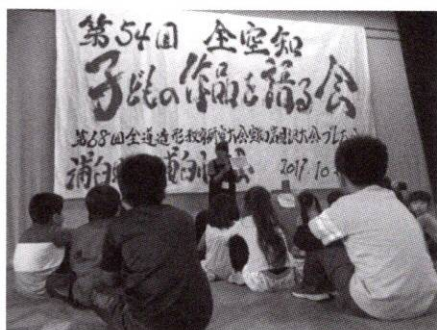 第54回 全空知
子どもの作品を語る会
第68回全道造形教育研究大会空知・滝川大会プレ大会
浦臼町
2017.10